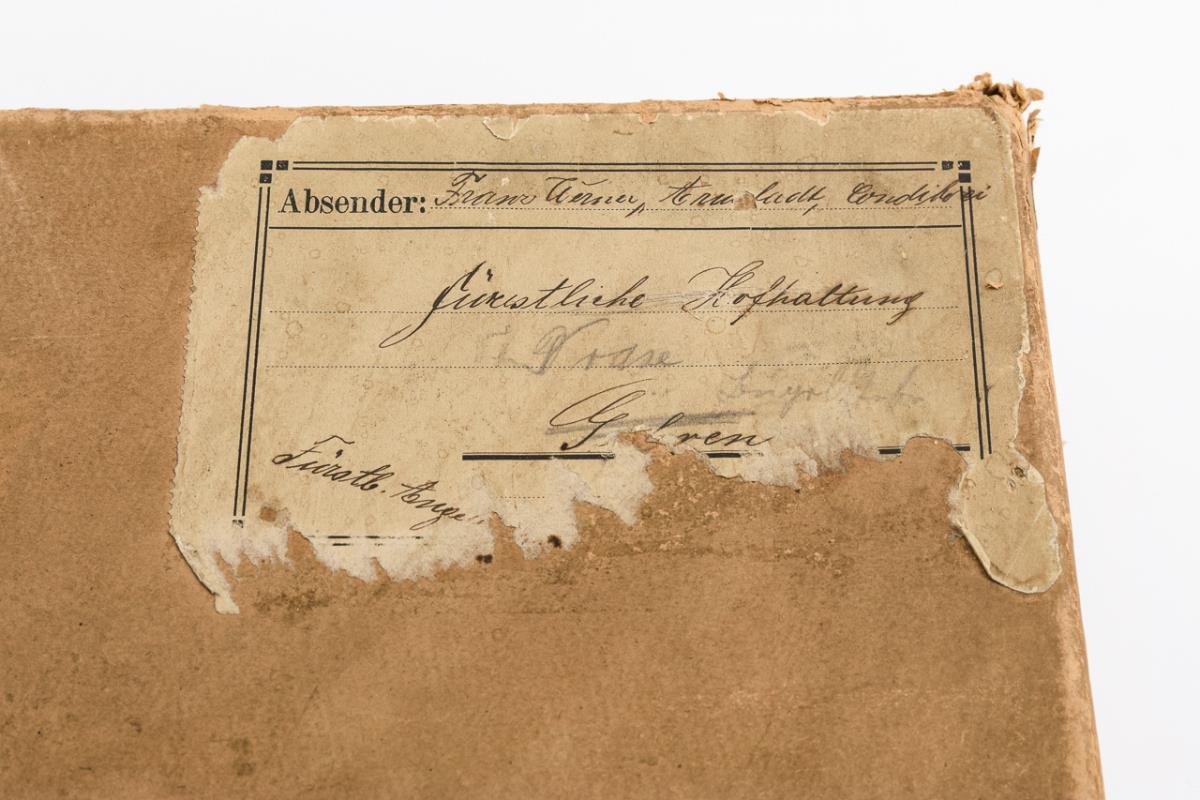 Absender: Franz Werner, Arnstadt, Conditorei
Fürstliche Hofhaltung
Gehren
Fürstl. Ange